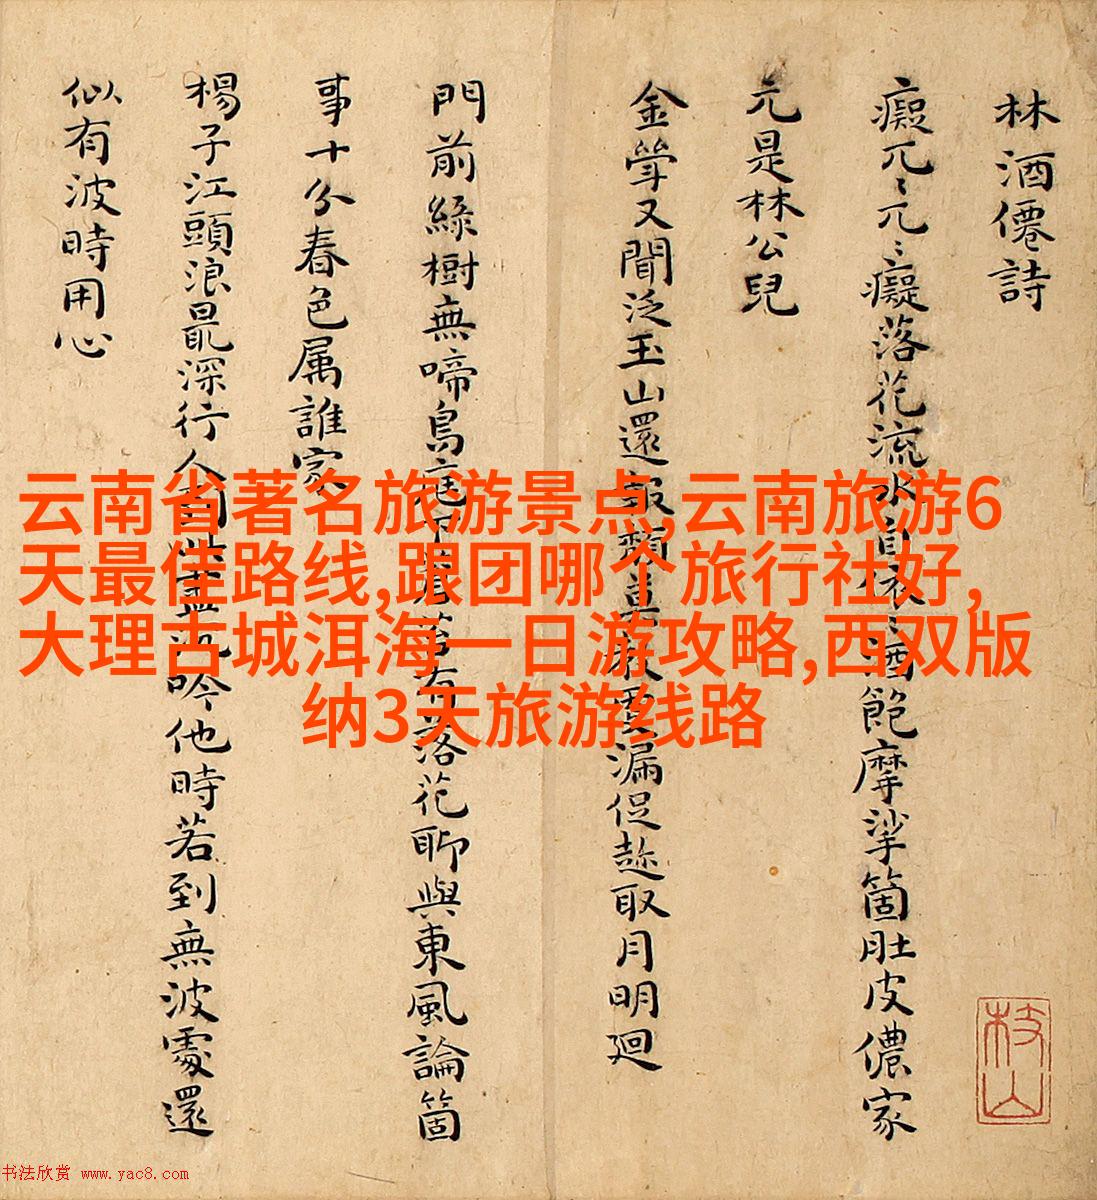 林酒僊詩
癡兀〻兀〻癡落花流水自依〻酒飽摩挲箇肚皮儂家
元是林公兒
金斝又聞泛玉山還報頹莫教更漏促趂取月明廻
門前綠樹無啼鳥庭下蒼苔有落花聊與東風論箇
事十分春色属誰家
楊子江頭浪最深行人到此盡沉吟他時若到無波處還
似有波時用心
枝山
云南省著名旅游景点,云南旅游6
天最佳路线,跟团哪个旅行社好,
大理古城洱海一日游攻略,西双版
纳3天旅游线路
书法欣赏 www.yac8.com